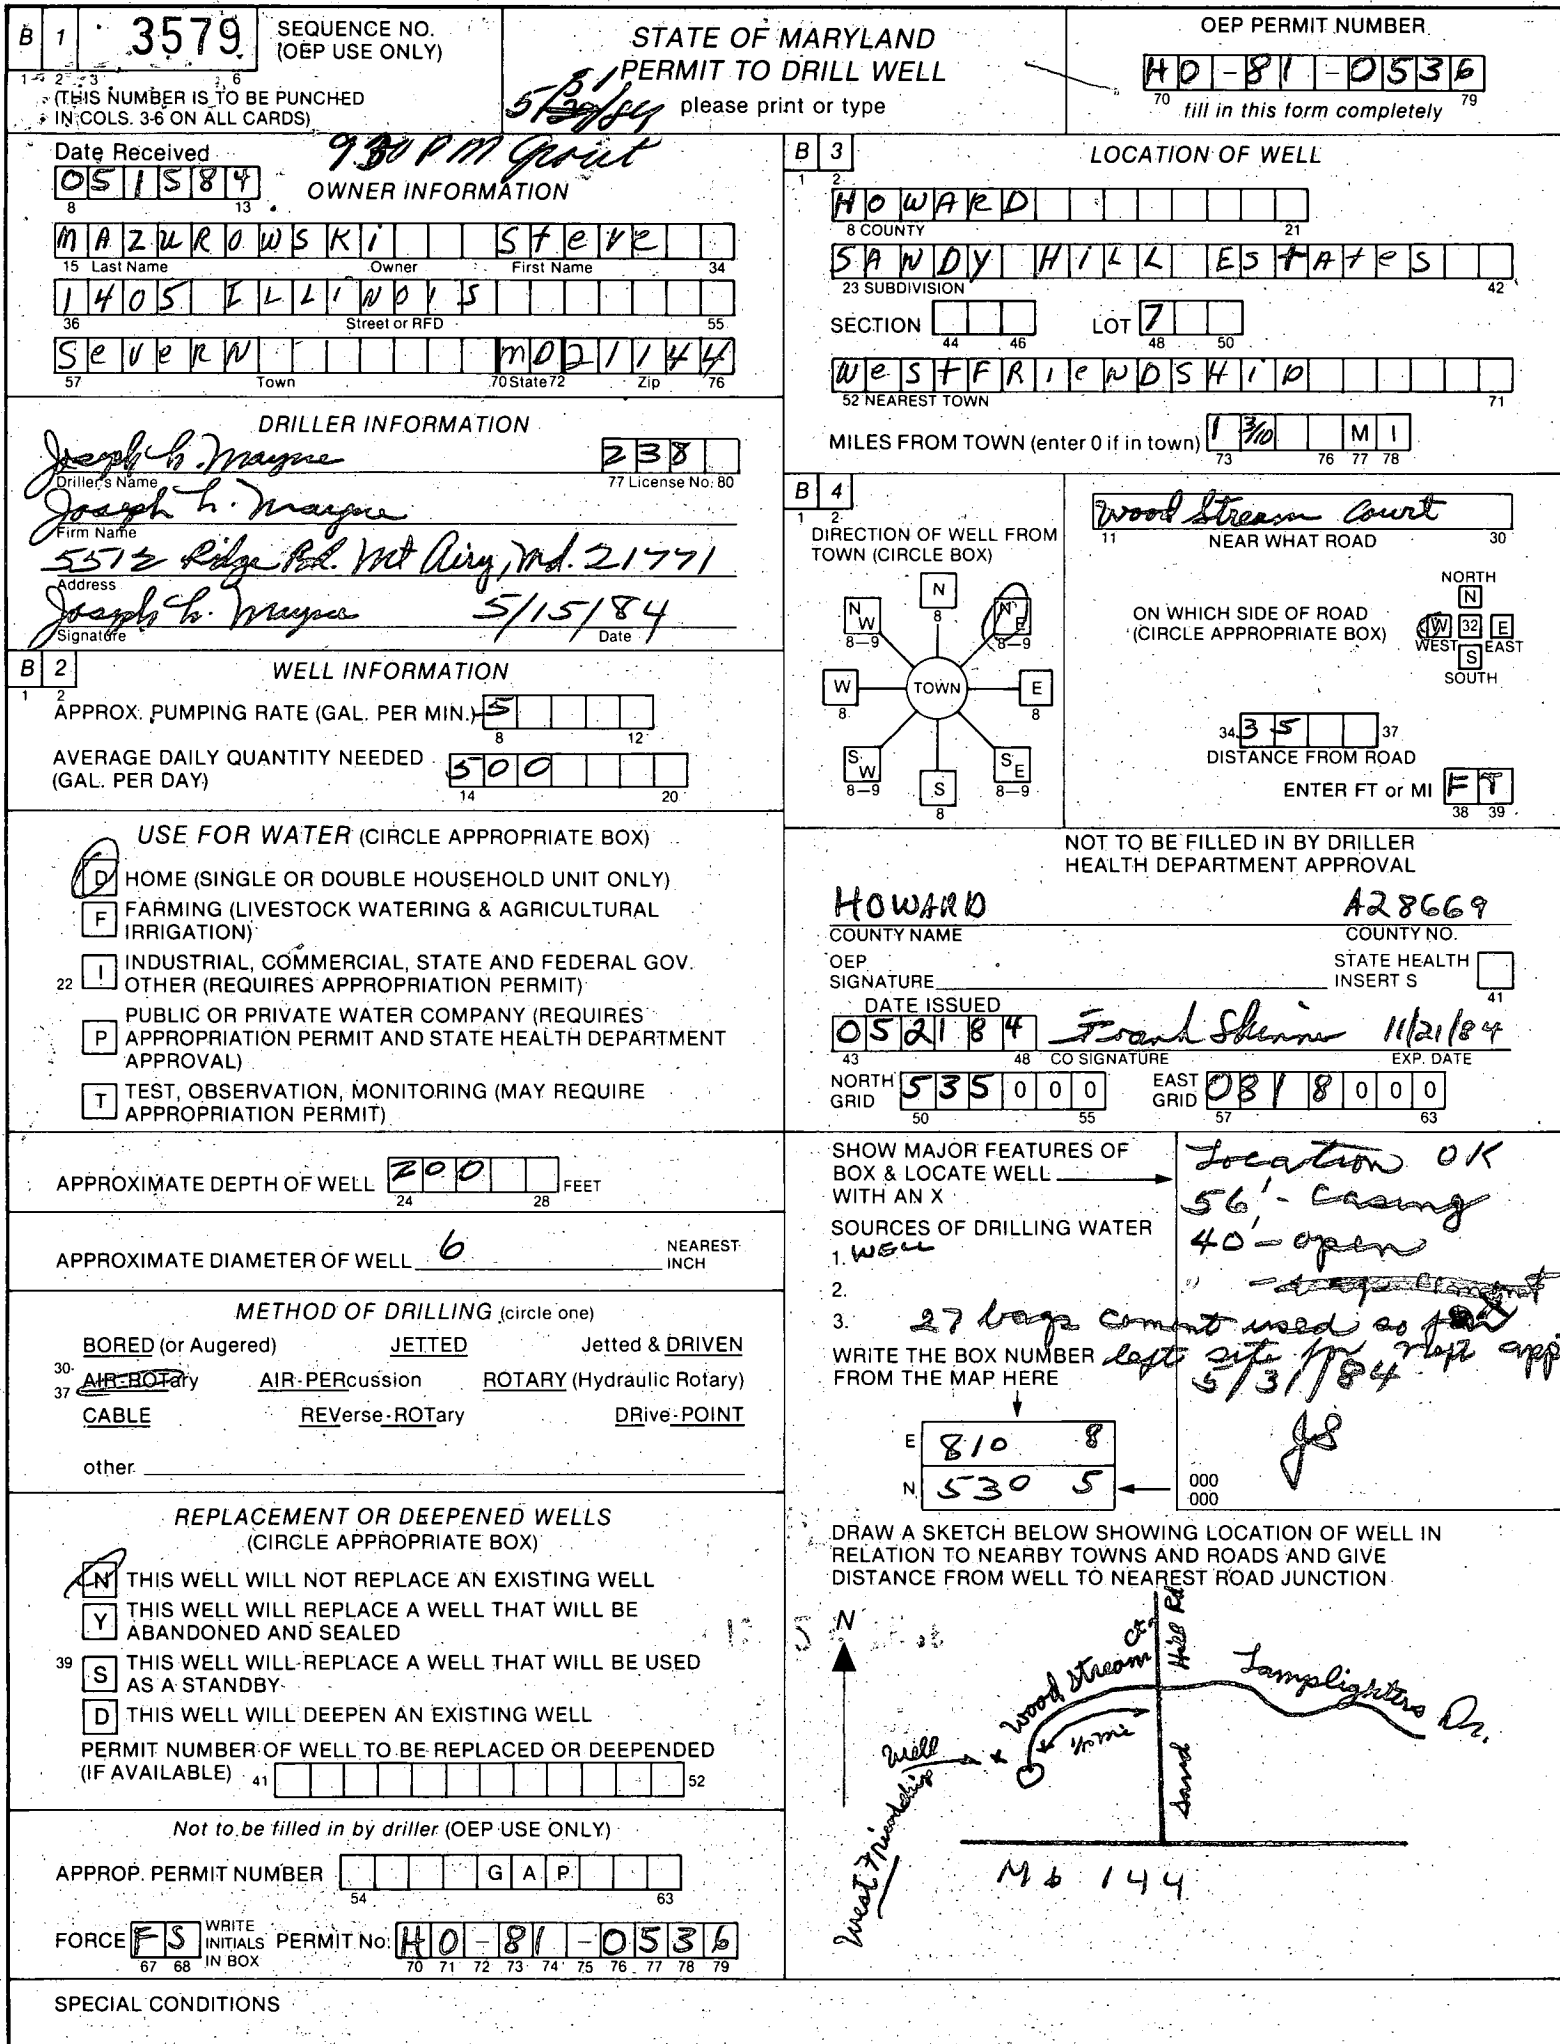 B 1 3579 SEQUENCE NO. (OEP USE ONLY)
1 2 3 6
(THIS NUMBER IS TO BE PUNCHED
IN COLS. 3-6 ON ALL CARDS)
STATE OF MARYLAND
PERMIT TO DRILL WELL
please print or type
OEP PERMIT NUMBER
HO-81-0536
70 79
fill in this form completely
Date Received
051584
8 13
PM Grout
OWNER INFORMATION
MAZUROWSKI Steve
15 Last Name Owner First Name 34
1405 ILLINOIS
36 Street or RFD 55
SeverN MD 21144
57 Town 70 State 72 Zip 76
DRILLER INFORMATION
Joseph L. Mayne 238
Driller's Name 77 License No. 80
Joseph L. Mayne
Firm Name
5512 Ridge Rd. Mt Airy, Md. 21771
Address
Joseph L. Mayne 5/15/84
Signature Date
B 2 WELL INFORMATION
1 2
APPROX. PUMPING RATE (GAL. PER MIN.) 5
8 12
AVERAGE DAILY QUANTITY NEEDED
(GAL. PER DAY) 500
14 20
USE FOR WATER (CIRCLE APPROPRIATE BOX)
D HOME (SINGLE OR DOUBLE HOUSEHOLD UNIT ONLY)
F FARMING (LIVESTOCK WATERING & AGRICULTURAL
IRRIGATION)
22 I INDUSTRIAL, COMMERCIAL, STATE AND FEDERAL GOV.
OTHER (REQUIRES APPROPRIATION PERMIT)
P PUBLIC OR PRIVATE WATER COMPANY (REQUIRES
APPROPRIATION PERMIT AND STATE HEALTH DEPARTMENT
APPROVAL)
T TEST, OBSERVATION, MONITORING (MAY REQUIRE
APPROPRIATION PERMIT)
APPROXIMATE DEPTH OF WELL 200 FEET
24 28
APPROXIMATE DIAMETER OF WELL 6 NEAREST
INCH
METHOD OF DRILLING (circle one)
BORED (or Augered) JETTED Jetted & DRIVEN
30- AIR-ROTary AIR-PERcussion ROTARY (Hydraulic Rotary)
37
CABLE REVerse-ROTary DRive-POINT
other
REPLACEMENT OR DEEPENED WELLS
(CIRCLE APPROPRIATE BOX)
N THIS WELL WILL NOT REPLACE AN EXISTING WELL
Y THIS WELL WILL REPLACE A WELL THAT WILL BE
ABANDONED AND SEALED
39 S THIS WELL WILL REPLACE A WELL THAT WILL BE USED
AS A STANDBY
D THIS WELL WILL DEEPEN AN EXISTING WELL
PERMIT NUMBER OF WELL TO BE REPLACED OR DEEPENDED
(IF AVAILABLE) 41 52
Not to be filled in by driller (OEP USE ONLY)
APPROP. PERMIT NUMBER GAP
54 63
FORCE FS WRITE INITIALS IN BOX PERMIT No: HO-81-0536
67 68 70 71 72 73 74 75 76 77 78 79
SPECIAL CONDITIONS
B 3 LOCATION OF WELL
1 2
HOWARD
8 COUNTY 21
SANDY HILL EStAteS
23 SUBDIVISION 42
SECTION LOT 7
44 46 48 50
WeStFRIeNDSHip
52 NEAREST TOWN 71
MILES FROM TOWN (enter 0 if in town) 1 3/10 MI
73 76 77 78
B 4
1 2
DIRECTION OF WELL FROM
TOWN (CIRCLE BOX)
N
8
NW NE
8-9 8-9
W TOWN E
8 8
SW SE
8-9 8-9
S
8
Wood Stream Court
11 NEAR WHAT ROAD 30
ON WHICH SIDE OF ROAD
(CIRCLE APPROPRIATE BOX)
NORTH
N
W 32 E
WEST EAST
S
SOUTH
34 35 37
DISTANCE FROM ROAD
ENTER FT or MI FT
38 39
NOT TO BE FILLED IN BY DRILLER
HEALTH DEPARTMENT APPROVAL
HOWARD A28669
COUNTY NAME COUNTY NO.
OEP
SIGNATURE STATE HEALTH
INSERT S
41
DATE ISSUED
052184 Frank Skinner 11/21/84
43 48 CO SIGNATURE EXP. DATE
NORTH GRID 535000 EAST GRID 0818000
50 55 57 63
SHOW MAJOR FEATURES OF
BOX & LOCATE WELL
WITH AN X
Location OK
56' - Casing
40' - open
SOURCES OF DRILLING WATER
1. WELL
2.
3.
27 bags cement used so far
left site for next app
5/31/84
JS
WRITE THE BOX NUMBER
FROM THE MAP HERE
E 810 8
N 530 5
000
000
DRAW A SKETCH BELOW SHOWING LOCATION OF WELL IN
RELATION TO NEARBY TOWNS AND ROADS AND GIVE
DISTANCE FROM WELL TO NEAREST ROAD JUNCTION
N
Wood Stream Ct.
Sand Hill Rd
Lamplighters Dr.
Well
West Friendship
Md 144